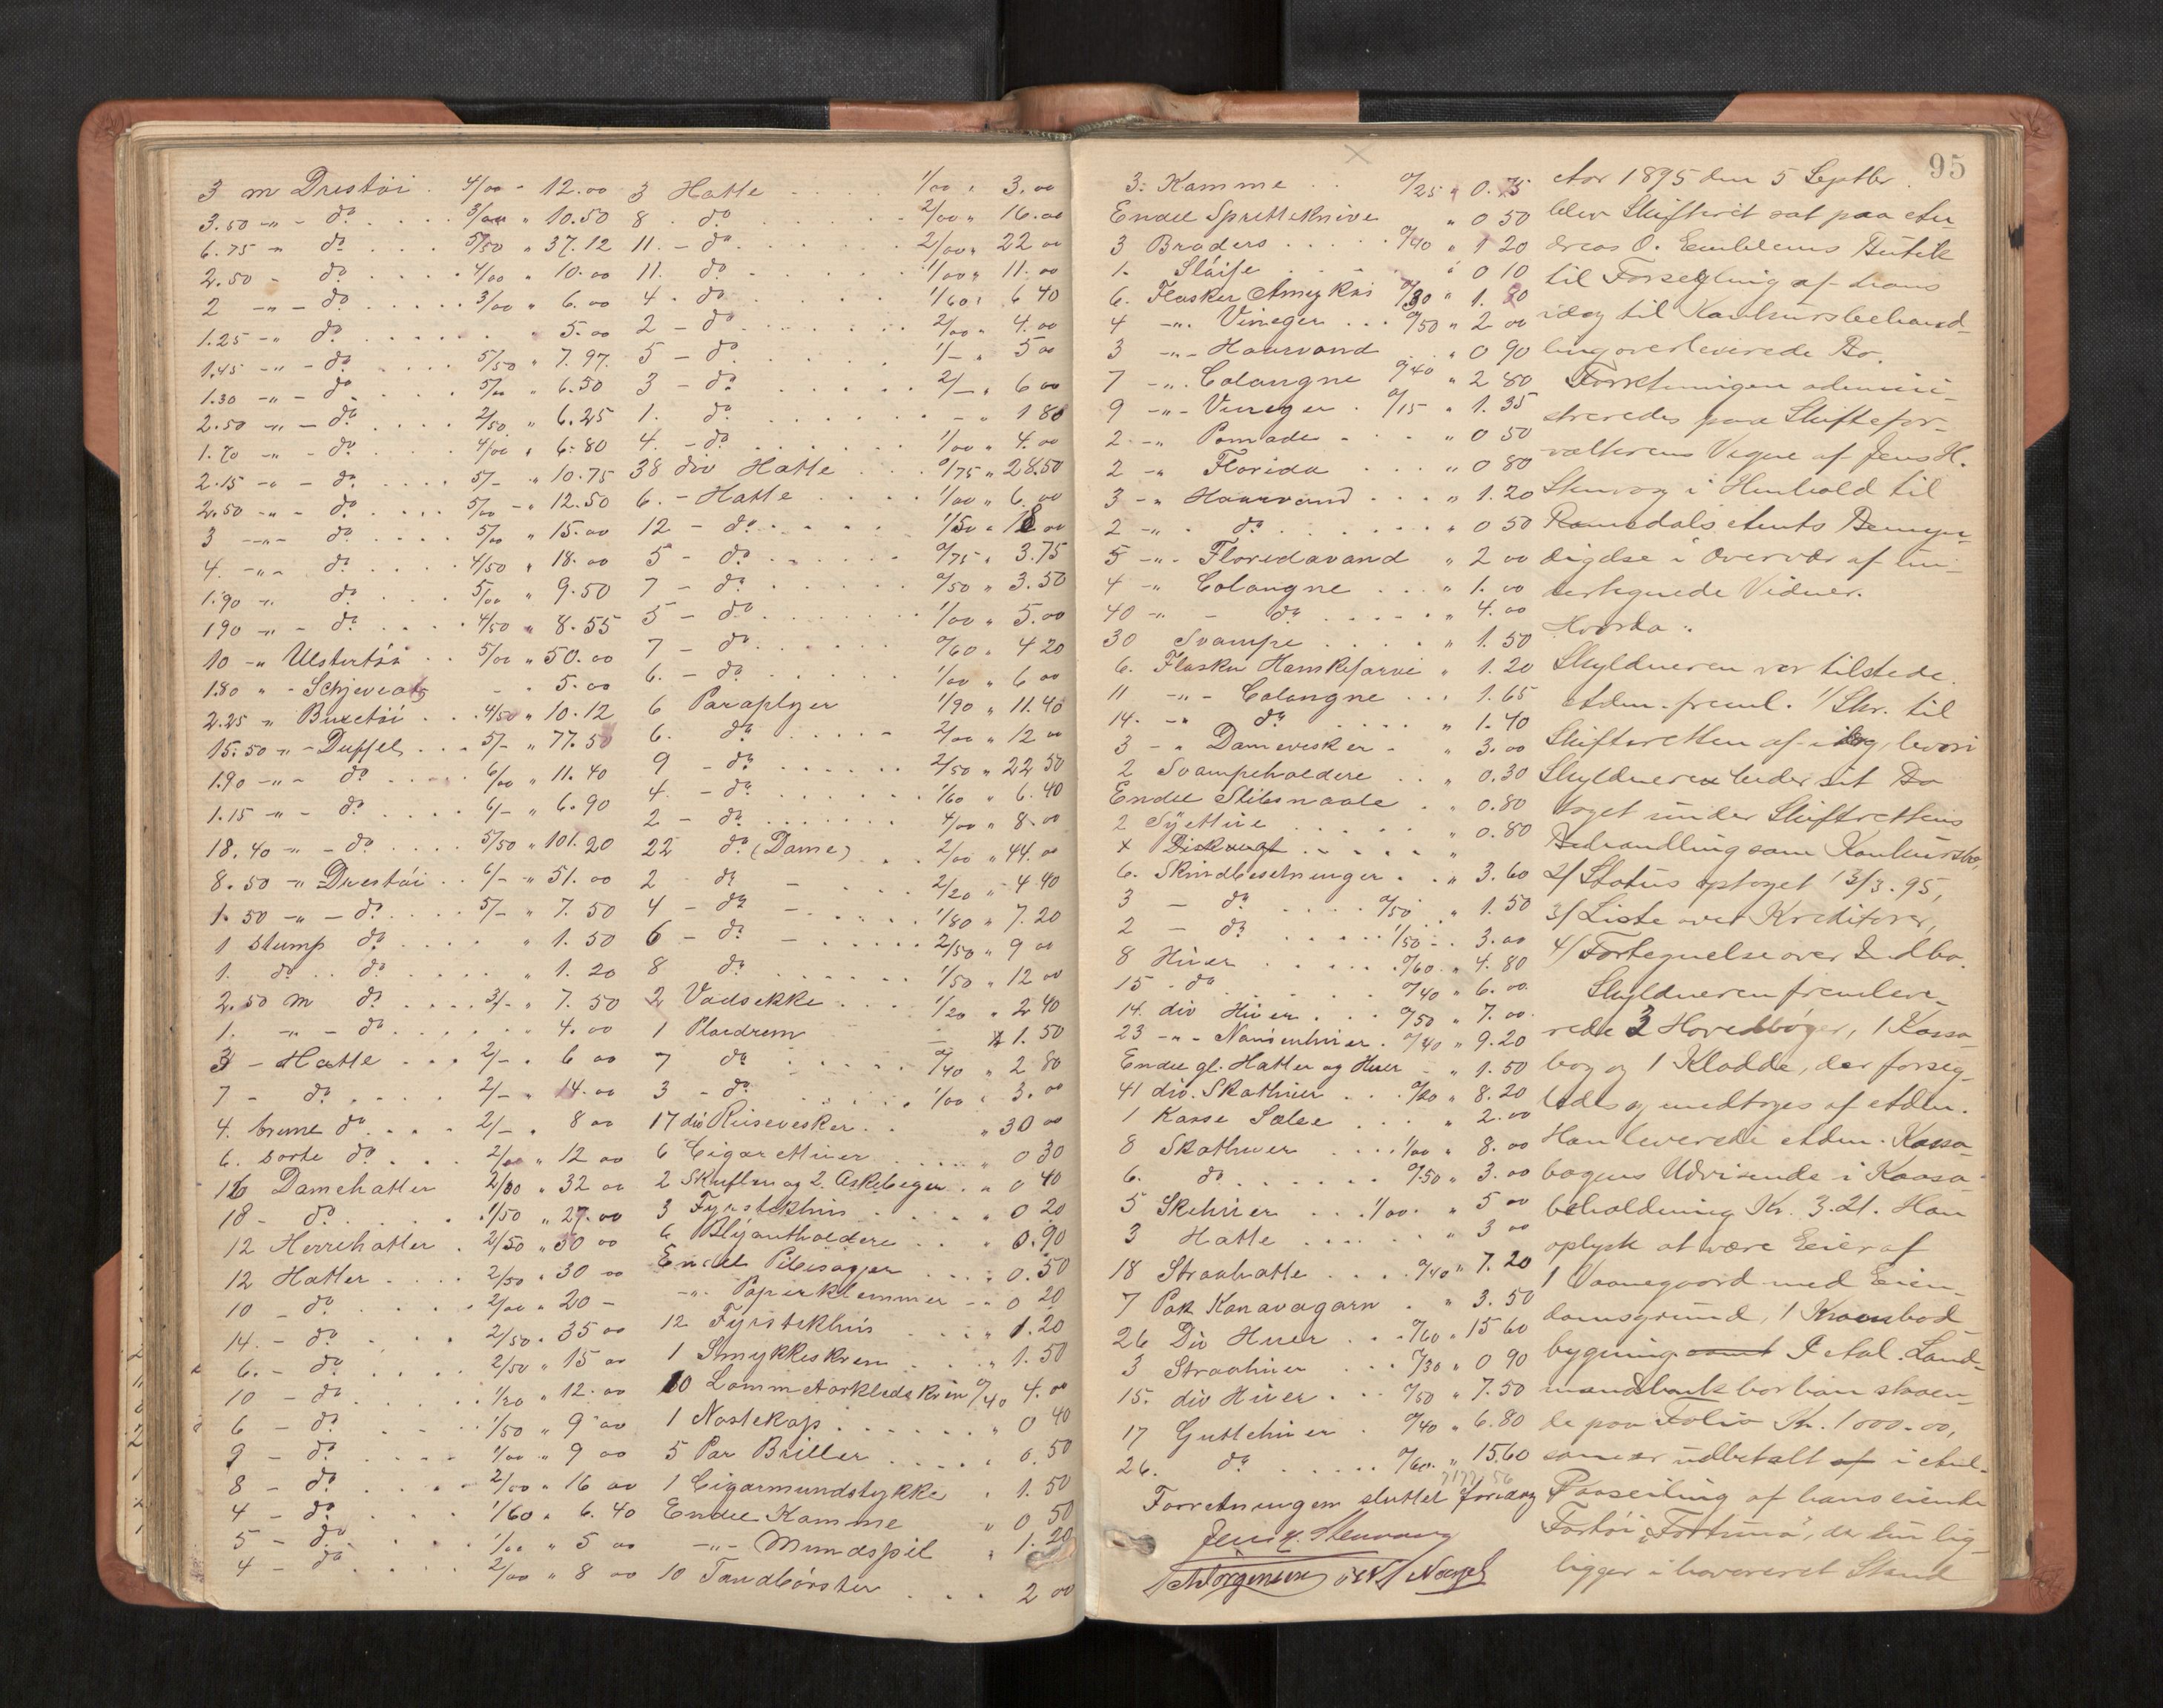 3 m Drestøi . 4/00 - 12.00
3.50 -"- do . . . . 3/00 " 10.50
6.75 -" do . . . 5/50 " 37.12
2.50 - do . . . . 4/00 " 10.00
2 -"- do . . . . . 3/00 " 6.00
1.25 -" do . . . . . . " 5.00
1.45 -"- do . . . . 5/50 " 7.97.
1.30 -"- do . . . . 5/00 " 6.50
2.50 -"- do . . . . 2/50 " 6.25
1.70 -"- do . . . . 4/00 " 6.80
2.15 -"- do . . . . 5/- " 10.75
2.50 -"- do . . . . 5/00 -" 12.50
3 -"- do . . . . 5/00 " 15.00
4. -"- do . . . . 4/50 " 18.00
1.90 -". do . . . 5/00 " 9.50
1.90 -"- do . . . . 4/50 " 8.55
10 -" Ulstertøi . . 5/00 " 50.00
1.80 " - Schjeveots - - " 5.00
2.25 -" Buxetøi . . . 4/50 " 10.12
15.50 -"- Duffel . . . 5/- " 77.50
1.90 -"- do . . . . . 6/00 " 11.40
1.15 -"- do . . . . 6/- " 6.90
18.40 -"- do . . . . 5/50 " 101.20
8.50 -" Drestøi . . 6/- " 51.00
1.50 -"- do . . . . 5/- " 7.50
1 stump do . . . . " 1.50
1. do . . do . . . . . " 1.20
2.50 m do . . . . 3/- " 7.50
1. -"- do . . . . . " 4.00
3 - Hatte . . . 2/- . 6 00
7 - do . . . . 2/- " 14.00
4. brune do . . . . 2/- . 8 00
6. sorte do . . . 2/00 " 12 00
16 Damehatter 2/00 " 32 00
18 - do . . . . 1/50 " 27.00
12 Herrehatter . 2/50 " 30 00
12 Hatter . . . . 2/50 . 30 00
10 - do . . . . . 2/00 " 20 -
14. - do . . . . 2/50 . 35 00
6. - do . . . . . 2/50 " 15 00
10 - do . . . . . 1/20 " 12.00
6 - do . . . . . 1/50 " 9 00
9 - do . . . . 1/00 " 9 00
8 - do . . . . . 2/00 " 16 00
4 - do . . . . 1/60 . 6.40
5 - do . . . . 1/00 " 5 00
4 - do . . . . 2/00 " 8 00
3 Hatte . . . . 1/00 . 3.00
8 . do . . . . . 2/00 " 16.00
11. - do . . . . . 2/00 " 22 00
11. do . . . . . . 1/00 " 11.00
4 . do . . . . . 1/60 . 6 40
2 - do . . . . . 2/00 " 4.00
5 - do . . . . . 1/- . 5 00
3 - do . . . . . 2/- . 6 00
1. do . . . . . - " 1 80
4. - do . . . . . 1/00 " 4.00
38 div Hatte . . . 0/75 " 28.50
6. - Hatte . . . . 1/00 " 6.00
12 - do . . . . 1/50 . 18 00
5 - do . . . . . 0/75 . 3.75
7 - do . . . . . 0/50 " 3.50
5 - do . . . . . 1/00 " 5.00
7 - do . . . . . 0/60 . 4 20
6. - do . . . . 1/00 " 6 00
6 Paraplyer 1/90 " 11.40
6. do . . . . - 2/00 " 12 00
9 - do . . . . . . 2/50 " 22 50
4. - do . . . . . 1/60 " 6.40
2 - do . . . . . . 4/00 " 8.00
22 do (Dame) . . 2/00 " 44.00
2 do - . . . . 2/20 " 4.40
4 - do - . . . . . 1/80 " 7.20
6 - do - . . . . . 2/50 " 9 00
8 do . . . . . . 1/50 " 12 00
2 Vadsekke . . . 1/20 . 2 40
1 Plaedrem - 1.50
7 do . . . . . 0/40 " 2 80
3 - do . . . . . 1/00 . 3.00
17 div Reisevesker . . " 30 00
6 Cigarettiier . . . . " 0 30
2 Skuffer og 2. Askebeger . " 0 40
3 Fyrstikhus . . . . . 0 20
6 Blyantholdere . . . " 0.90
Endel Pibesager . . . . 0.50
-". Paperklemmer - . . 0 20
12 Fyrstikhus . . . . " 1.20
1 Smykkeskrin . . . " 1.50
10 Lommetørklædeskrin 0/40 4.00
1 Nøstekop . . . . . . " 0 40
5 Par Briller . . . . . 0.50
1 Cigarmundstykke . 1.50
Endel Kamme " 0 50
-"- Mundspil " 1.20
10 Tandbørster . . . 2 00
95
3: Kamme . . 0/25 " 0.75
Endel Spretteknive " 0 50
3 Broders . . . . . 0/40 " 1 20
1. Sløife . . . . . " 0 10
6. Flasker Amykos 0/30 " 1.80
4 -". Vineger . . . 0/50 " 2 00
3 -"- Haarvand . . " 0 90
7 -". Colangne 0/40 " 2 80
9 -"- Vineger . 0/15 " 1.35
2 -" Pomade - . . " 0 50
2 -" Florida . . . . " 0 80
3 -" Haarvand . . . " 1.20
2 -" . do . . . . . . " 0 50
5 -". Floridavand " 2 00
4 -" Colangne . . . " 1.00
40 -" - do . . . . - " 4.00
30 Svampe . . . . " 1.50
6. Flasker Hanskefarve " 1.20
11 -"- Colangne . . . 1.65
14. -" do . . . . " 1.40
3 - " Damevesker - " 3.00
2 Svampeholdere . . " 0.30
Endel Slibsnaale . " 0.80
2 Syettiie . . . . . " 0.80
6. Skindbesetninger . . " 3.60
3 - do . . . . 0/50 " 1.50
2 - do . . . . . 1/50 - . 3.00
8 Huer . . . . . 0/60 . " 4.80
15 - do . . . . . 0/40 " 6.00
14. div Huer . . . 0/50 " 7.00
23 -"- Nansenhuer . 0/40 " 9.20
Endel gl. Hatter og Huer - " 1.50
41 div. Skothuer . . . 0/20 " 8.20
1 Kasse Sælee . . . " 2.00
8 Skothuer . . . . 1/00 " 8.00
6. do . . . . . . 0/50 " 3.00
5 Skihuer . . . 1/00 . " 5 00
3 Hatte . . . . . " 3 00
18 Straahatte . . . . 0/40 " 7.20
7 Pak Kanavagarn . " 3.50
26 Div Huer . . . 0/60 " 15 60
3 Straahuer . . . 0/30 " 0 90
15. div Huer . . . 0/50 " 7.50
17 Guttehuer . 0/40 " 6.80
26. do . . . . . 0/60 " 15.60
Forretningen sluttet foridag
Jens H. Stenvaag
Aar 1895 den 5 Septbr.
blev Skifteret sat paa An-
dreas O. Emblems Butik
til Forsegling af hans
idag til Konkursbehand-
ling overleverede Bo.
Forretningen admini-
streredes paa Skiftefor-
valterens Vegne af Jens H.
Stenvaag i Henhold til
Romsdals Amts Bemyn-
digelse i Overvær af un-
dertegnede Vidner.
Hvorda:
Skyldneren var tilstede.
Adm. freml. 1/ Skr. til
Skifteretten af idag, hvori
Skyldneren beder sit Bo
taget under Skifterettens
Behandling som Konkursbo,
2/ Status optaget 13/3.95,
3/ Liste over Kreditorer,
4/ Fortegnelse over Indbo.
Skyldneren fremleve-
rede 3 Hovedbøger, 1 Kassa-
bog og 1 Kladde, der forseg-
ledes og medtoges af Adm.
Han leverede Adm. Kassa-
bogens Udvisende i Kassa-
beholdning Kr. 3.21. Han
oplyste at være Eier af
1 Vaanegaard med Eien-
domsgrund, 1 Krambod-
bygning samt I Aal. Land-
mandsbank har han staaen-
de paa Folio Kr. 1000.00,
som er udbetalt af i Anl.
Paaseiling af hans eiende
Fartøi "Fortuna", der nu lig-
ligger i havareret Stand